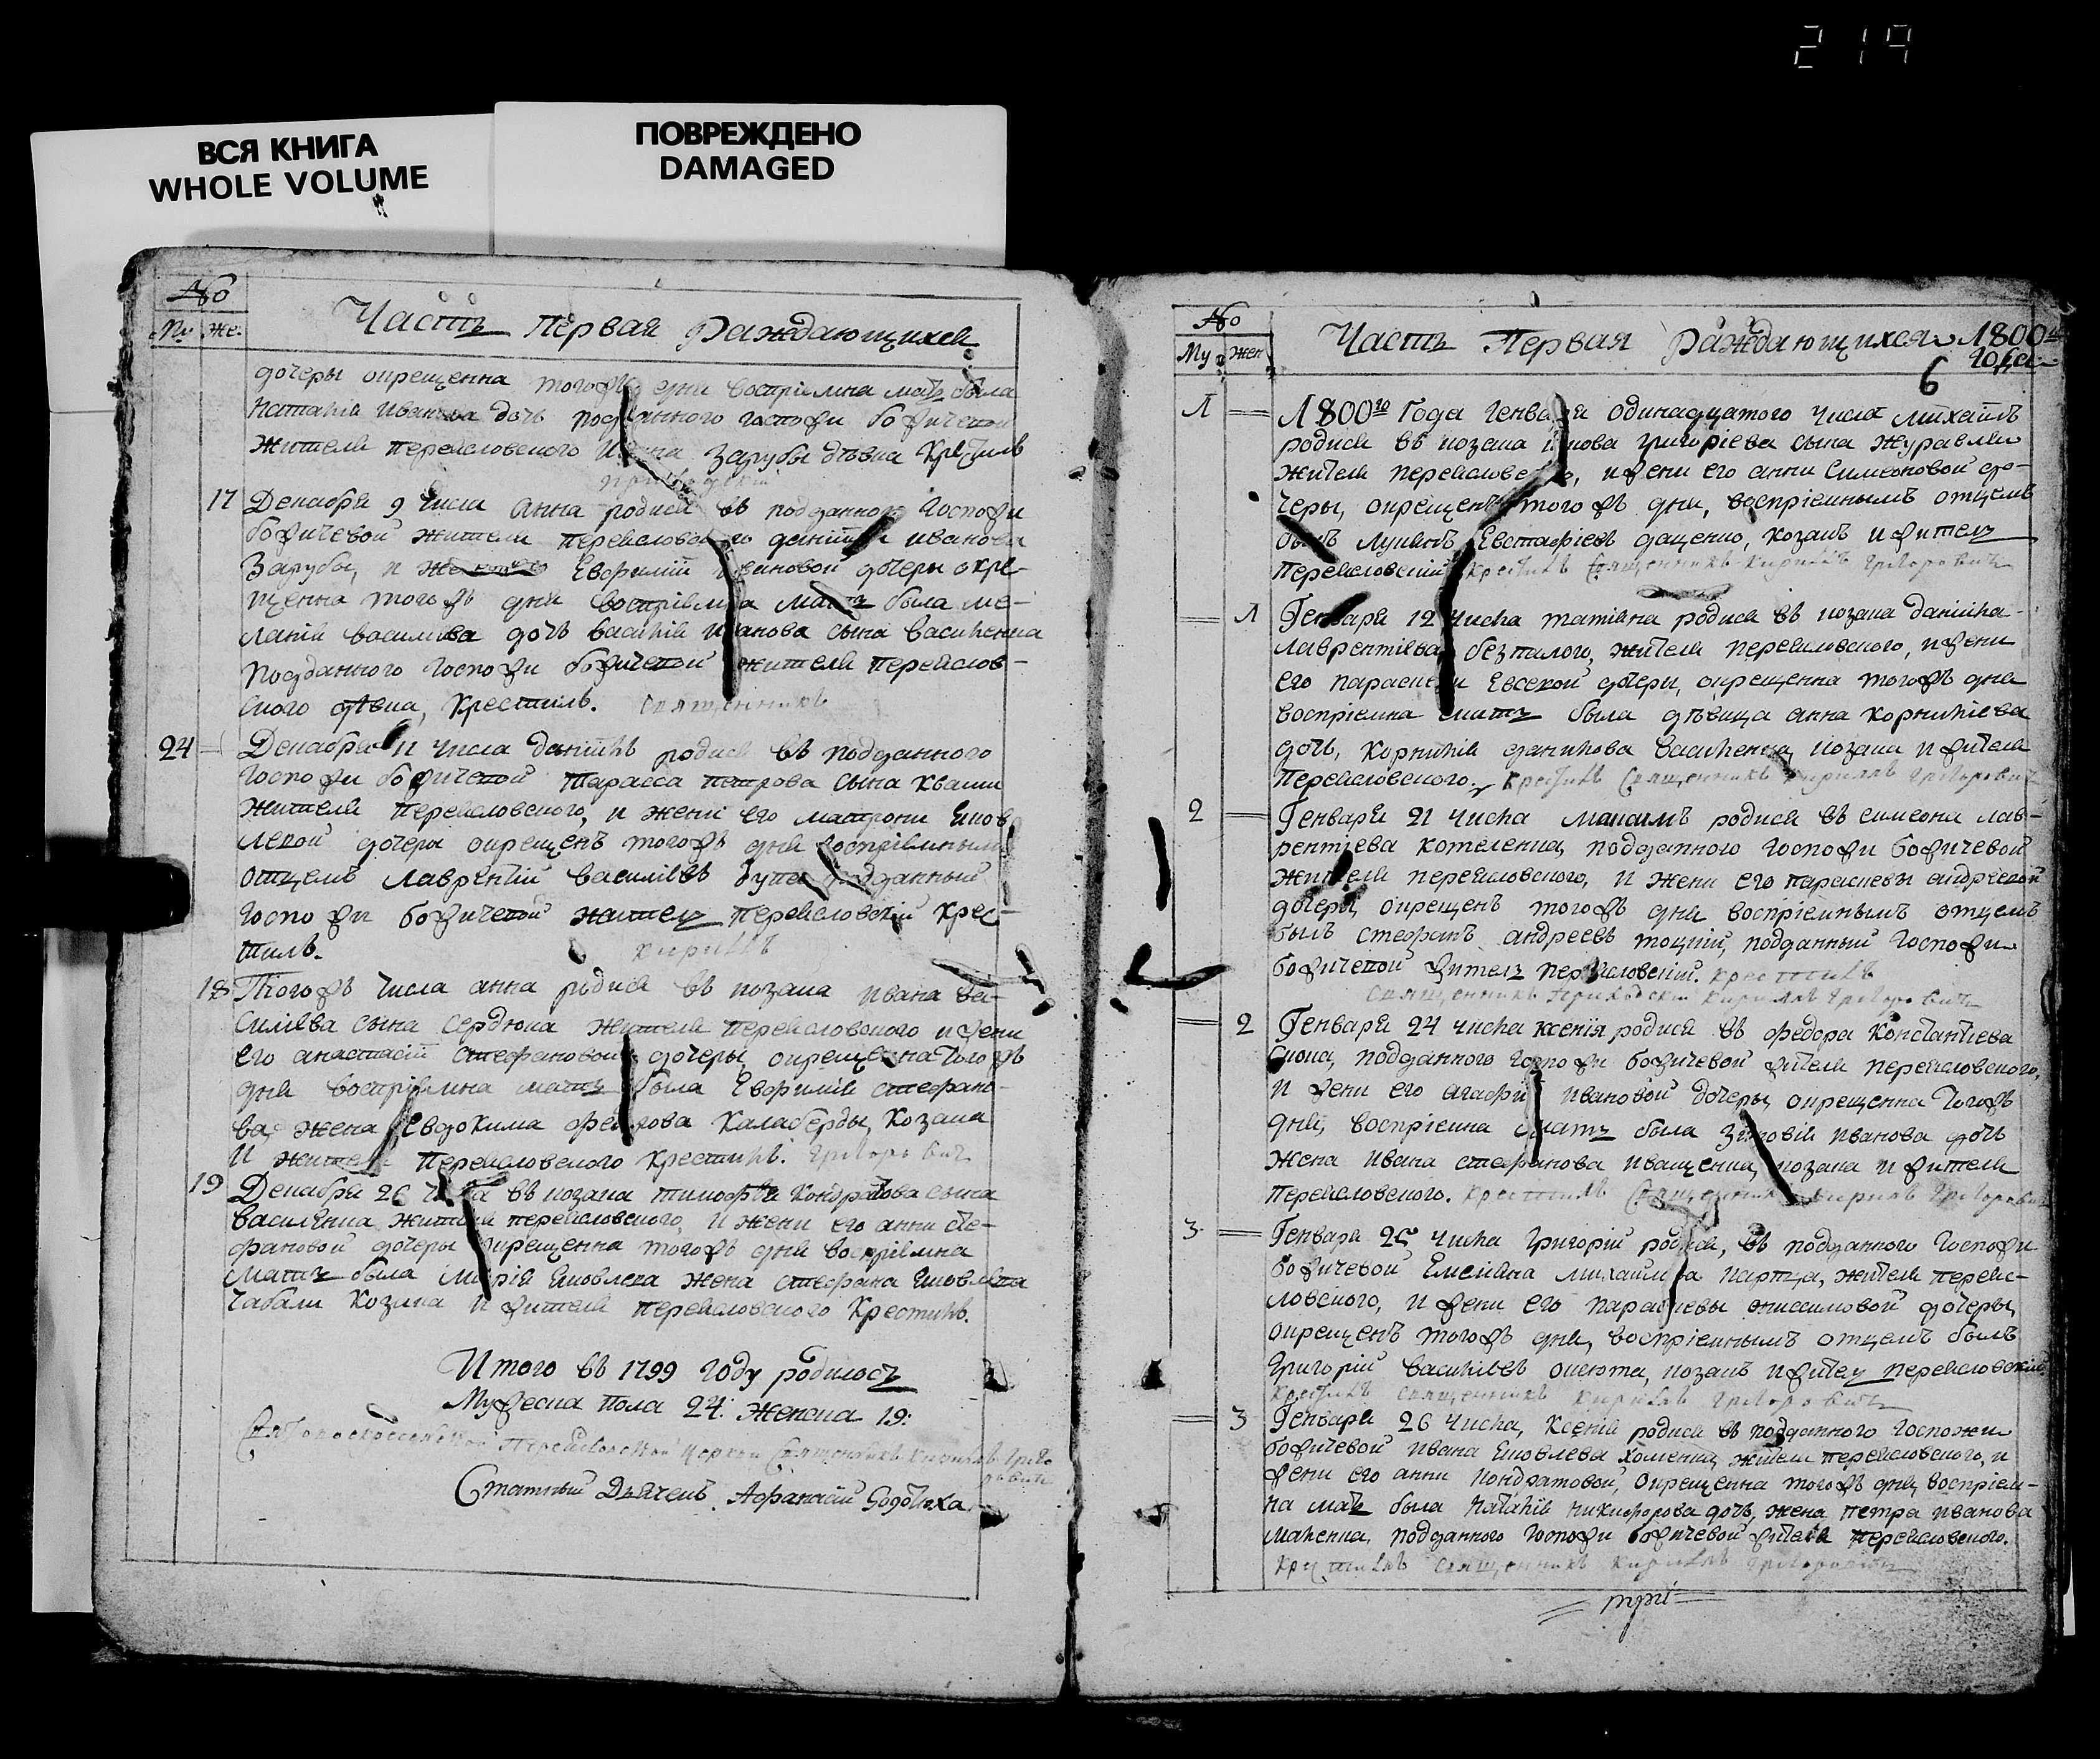 219
ВСЯ КНИГА
WHOLE VOLUME
ПОВРЕЖДЕНО
DAMAGED
№
Му Же.
Часть Первая Раждающихся
дочеры окрещенна тогожъ дня воспріемна мать была
Наталія Иванова дочь подданного госпожи божичевой
жителя переясловского Зарубы дѣвка Крестилъ
17 Декабря 9 числа Анна родися въ подданного Госпожи
божичевой жителя переясловского даніила иванова
Зарубы, и Евфиміи ивановой дочеры окре-
щенна тогожъ дня воспріемна мать была ме-
ланія василиева дочь василія иванова сына василенка
подданного госпожи божичевой жителя переяслов-
ского дѣвка, Крестилъ. Священникъ
24 Декабря 11 числа даніилъ родися въ подданного
госпожи божичевой Тарасса петрова сына Кваши
жителя переясловского, и жени его матрони Яков
левой дочеры окрещенъ тогожъ дня воспріемнымъ
отцемъ лаврентій василіевъ подданный
госпожи божичевой житель переясловскій крес-
тилъ. Кириллъ
18 Тогожъ числа анна родися въ козака ивана ва-
силіева сына сердюка жителя переясловского и жени
его анастасіи стефановой дочеры, окрещенна тогожъ
дня воспріемна мать была Евфимія стефано-
ва, жена Евдокима федорова Калаберды, Козака
И жителя Переясловского крестилъ. Григоровичъ
19 Декабря 26 числа въ козака тимофея Кондратова сына
василенка, жителя переясловского, и жени его анни сте-
фановой дочеры окрещенна тогожъ дня воспріемна
мать была Марія Яковлева жена стефана Яковлева
Чабали Козака и жителя переясловского Крестилъ.
Итого въ 1799 году родилось
Мужеска пола 24: Женска 19:
Переясловской Церкви Священникъ Кириллъ Григо
ровичъ
Статный Дьячекъ Афанасій
№
Му Жен
Часть Первая Раждающихся 1800
года
6
1 1800го Года Генваря одинадцатого числа михаилъ
родися въ козака григоріева сына журавля
жителя переясловского, и жени его анни Симеоновой до-
черы, окрещенъ тогожъ дня, воспріемнымъ отцемъ
былъ Лукянъ Евстафіевъ даценко, козакъ и житель
переясловскій Крестилъ Священникъ Кириллъ Григоровичъ
1 Генваря 12 числа татіяна родися въ козака даніила
лаврентіева безпалого, жителя переясловского, и жени
его параскеви Евсевой дочеры, окрещенна тогожъ дня
воспріемна мать была дѣвица анна корниліева
дочь, корнилія данилова василенка, козака и жителя
переясловского. Крестилъ Священникъ Кириллъ Григоровичъ
2 Генваря 21 числа максимъ родися въ симеона лав-
рентіева котеленца, подданного госпожи божичевой
жителя переясловского, и жени его параскевы андреевой
дочеры, окрещенъ тогожъ дня воспріемнымъ отцемъ
былъ стефанъ андреевъ тоцкій, подданный госпожи
божичевой житель переясловскій. крестилъ
священникъ Приходскій Кириллъ Григоровичъ
2 Генваря 24 числа ксенія родися въ федора Константіева
подданного госпожи божичевой жителя переясловского,
и жени его агафіи ивановой дочеры, окрещенна тогожъ
дня, воспріемна мать была Зиновія иванова дочь
жена ивана стефанова иващенка, козака и жителя
переясловского. крестилъ Священникъ Кириллъ Григоровичъ
3 Генваря 25 числа Григорій родися, въ подданного Госпожи
божичевой Емеліяна михаилова жителя переяс-
ловского, и жени его параскевы онисимовой дочеры,
окрещенъ тогожъ дня, воспріемнымъ отцемъ былъ
григорій василіевъ козакъ и житель переясловскій
Крестилъ священникъ Кириллъ Григоровичъ
3 Генваря 26 числа, Ксенія родися въ подданного госпожи
божичевой ивана Яковлева хоменка, жителя переясловского, и
жени его анни кондратовой, окрещенна тогожъ дня, воспріем-
на мать была Наталія никифорова дочь, жена петра иванова
подданного госпожи божичевой жителя переясловского.
Крестилъ священникъ Кириллъ Григоровичъ
три